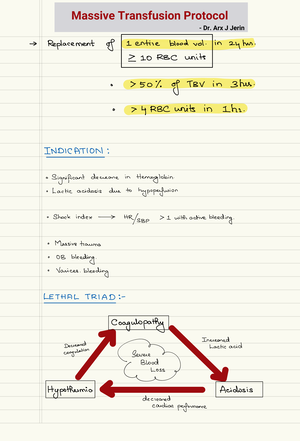 Massive Transfusion Protocol
- Dr. Arx J Jerin
→ Replacement of 1 entire blood vol. in 24 hrs.
≥ 10 RBC units
• > 50% of TBV in 3 hrs.
• > 4 RBC units in 1 hr.
INDICATION:
• Significant decrease in Hemoglobin
• Lactic acidosis due to hypoperfusion
• Shock index → HR/SBP > 1 with active bleeding.
• Massive trauma
• OB bleeding
• Variceal bleeding
LETHAL TRIAD:-
Coagulopathy
Decreased
coagulation
Severe
Blood
Loss
Increased
Lactic acid
Hypothermia
Acidosis
decreased
cardiac performance